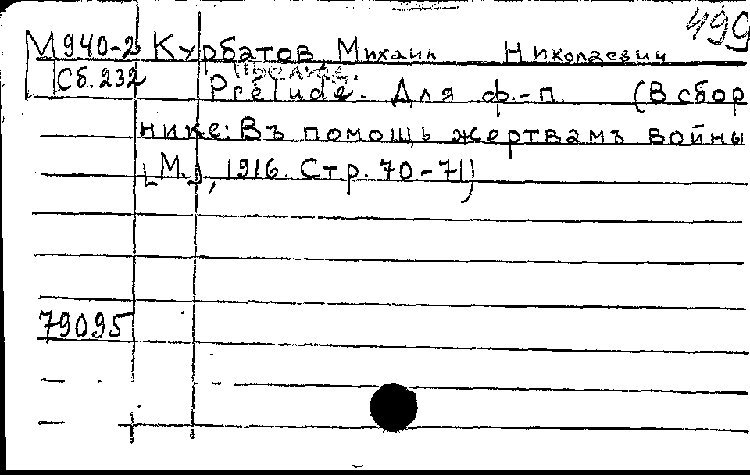 499
М940-2 Курбатов Михаил Николаевич
Сб. 232 Прелюд.
Prélude. Для ф.-п. (В сбор
нике: Въ помощь жертвамъ войны
[М.], 1916. Стр. 70-71)
79095